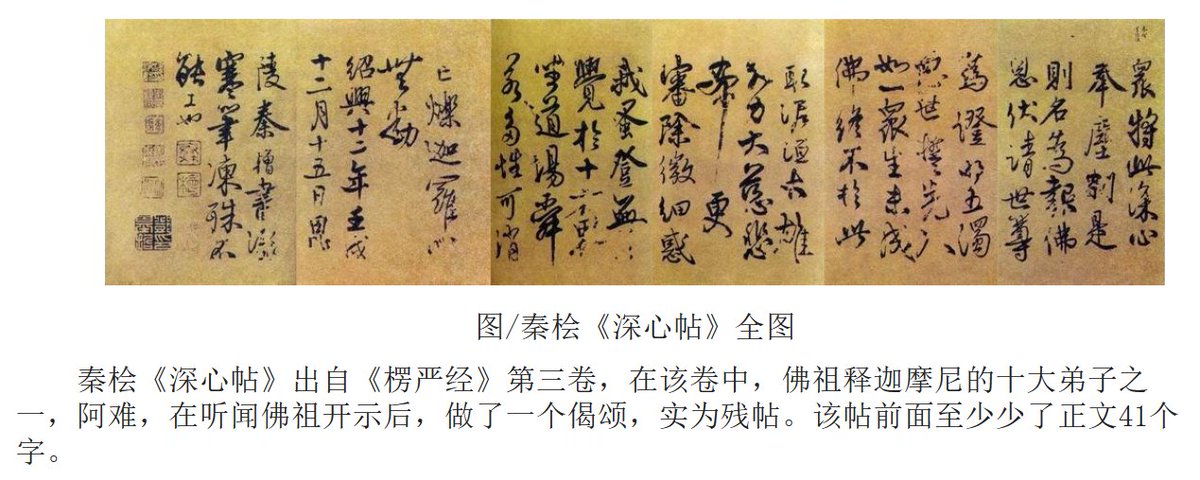 衆將此深心
奉塵剎是
則名為報佛
恩伏請世尊
為證明五濁
惡世誓先入
如一衆生未成
佛終不於此
取泥洹大雄
大力大慈悲
希更
審除微細惑
我蚤登無上
覺於十方界
坐道場舜
若多性可消
亡爍迦羅心
無動
紹興十二年壬戌
十二月十五日
陵秦檜書
寒筆凍殊不
能工也
图/秦桧《深心帖》全图
秦桧《深心帖》出自《楞严经》第三卷，在该卷中，佛祖释迦摩尼的十大弟子之
一，阿难，在听闻佛祖开示后，做了一个偈颂，实为残帖。该帖前面至少少了正文41个
字。